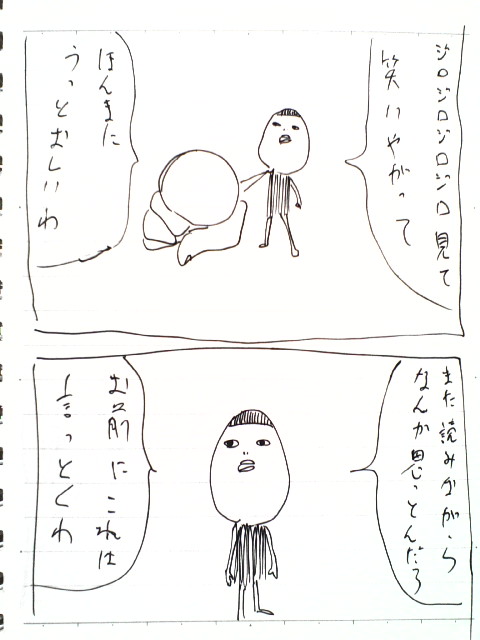 ジロジロジロジロ見て
笑いやがって
ほんまに
うっとおしいわ
また読みながら
なんか思っとんだろ
お前にこれは
言っとくわ